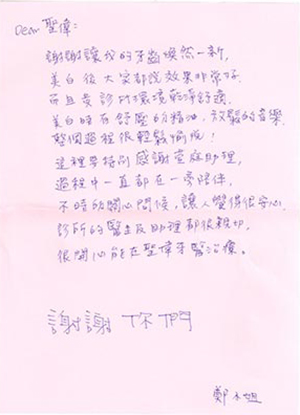 Dear 聖偉:
謝謝讓我的牙齒煥然一新,
美白後大家都說效果非常好,
而且貴診所環境乾淨舒適,
美白時有舒壓的精油,放鬆的音樂,
整個過程很輕鬆愉悅!
這裡要特別感謝家庭助理,
過程中一直都在一旁陪伴,
不時的關心問候,讓人覺得很安心,
診所的醫生及助理都很親切,
很開心能在聖偉牙醫治療。
謝謝 你們
鄭小姐